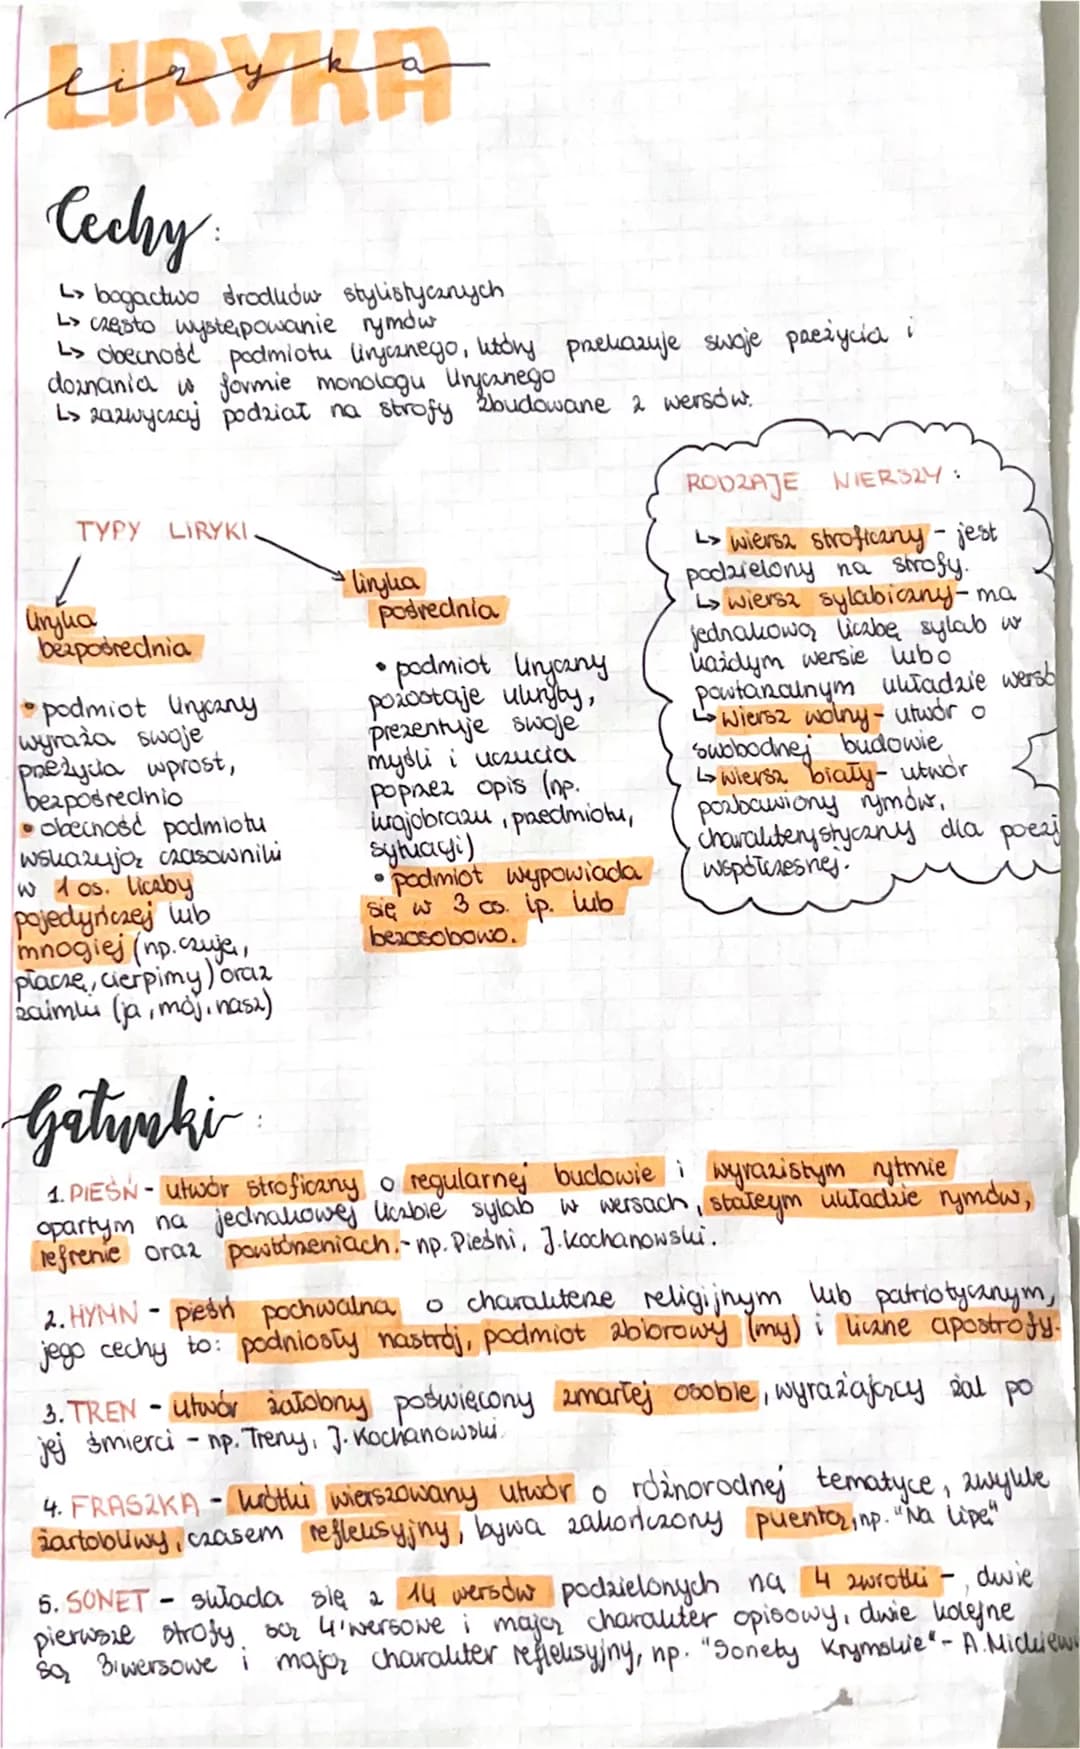 LIRYKA
liryka
Cechy:
↳ bogactwo środków stylistycznych
↳ często występowanie rymów
↳ obecność podmiotu lirycznego, który przekazuje swoje przeżycia i
doznania w formie monologu lirycznego
↳ zazwyczaj podział na strofy zbudowane z wersów.
TYPY LIRYKI
liryka
bezpośrednia
• podmiot liryczny
wyraża swoje
przeżycia wprost,
bezpośrednio
• obecność podmiotu
wskazują czasowniki
w 1 os. liczby
pojedyńczej lub
mnogiej (np. czuję,
płaczę, cierpimy) oraz
zaimki (ja, mój, nasz)
liryka
pośrednia
• podmiot liryczny
pozostaje ukryty,
prezentuje swoje
myśli i uczucia
poprzez opis (np.
krajobrazu, przedmiotu,
sytuacji)
• podmiot wypowiada
się w 3 os. lp. lub
bezosobowo.
RODZAJE WIERSZY:
↳ wiersz stroficzny - jest
podzielony na strofy.
↳ wiersz sylabiczny - ma
jednakową liczbę sylab w
każdym wersie lub o
powtarzalnym układzie wersó
↳ wiersz wolny - utwór o
swobodnej budowie
↳ wiersz biały - utwór
pozbawiony rymów,
charakterystyczny dla poezji
współczesnej.
Gatunki:
1. PIEŚŃ - utwór stroficzny o regularnej budowie i wyrazistym rytmie
opartym na jednakowej liczbie sylab w wersach, stałeym układzie rymów,
refrenie oraz powtórzeniach. - np. Pieśni, J. Kochanowski.
2. HYMN - pieśń pochwalna o charakterze religijnym lub patriotycznym,
jego cechy to: podniosły nastrój, podmiot zbiorowy (my) i liczne apostrofy.
3. TREN - utwór żałobny poświęcony zmarłej osobie, wyrażający żal po
jej śmierci - np. Treny, J. Kochanowski.
4. FRASZKA - krótki wierszowany utwór o różnorodnej tematyce, zwykle
żartobliwy, czasem refleksyjny, bywa zakończony puentą, np. "Na lipę"
5. SONET - składa się z 14 wersów podzielonych na 4 zwrotki -, dwie
pierwsze strofy są 4'wersowe i mają charakter opisowy, dwie kolejne
są 3'wersowe i mają charakter refleksyjny, np. "Sonety Krymskie" - A. Mickiewi